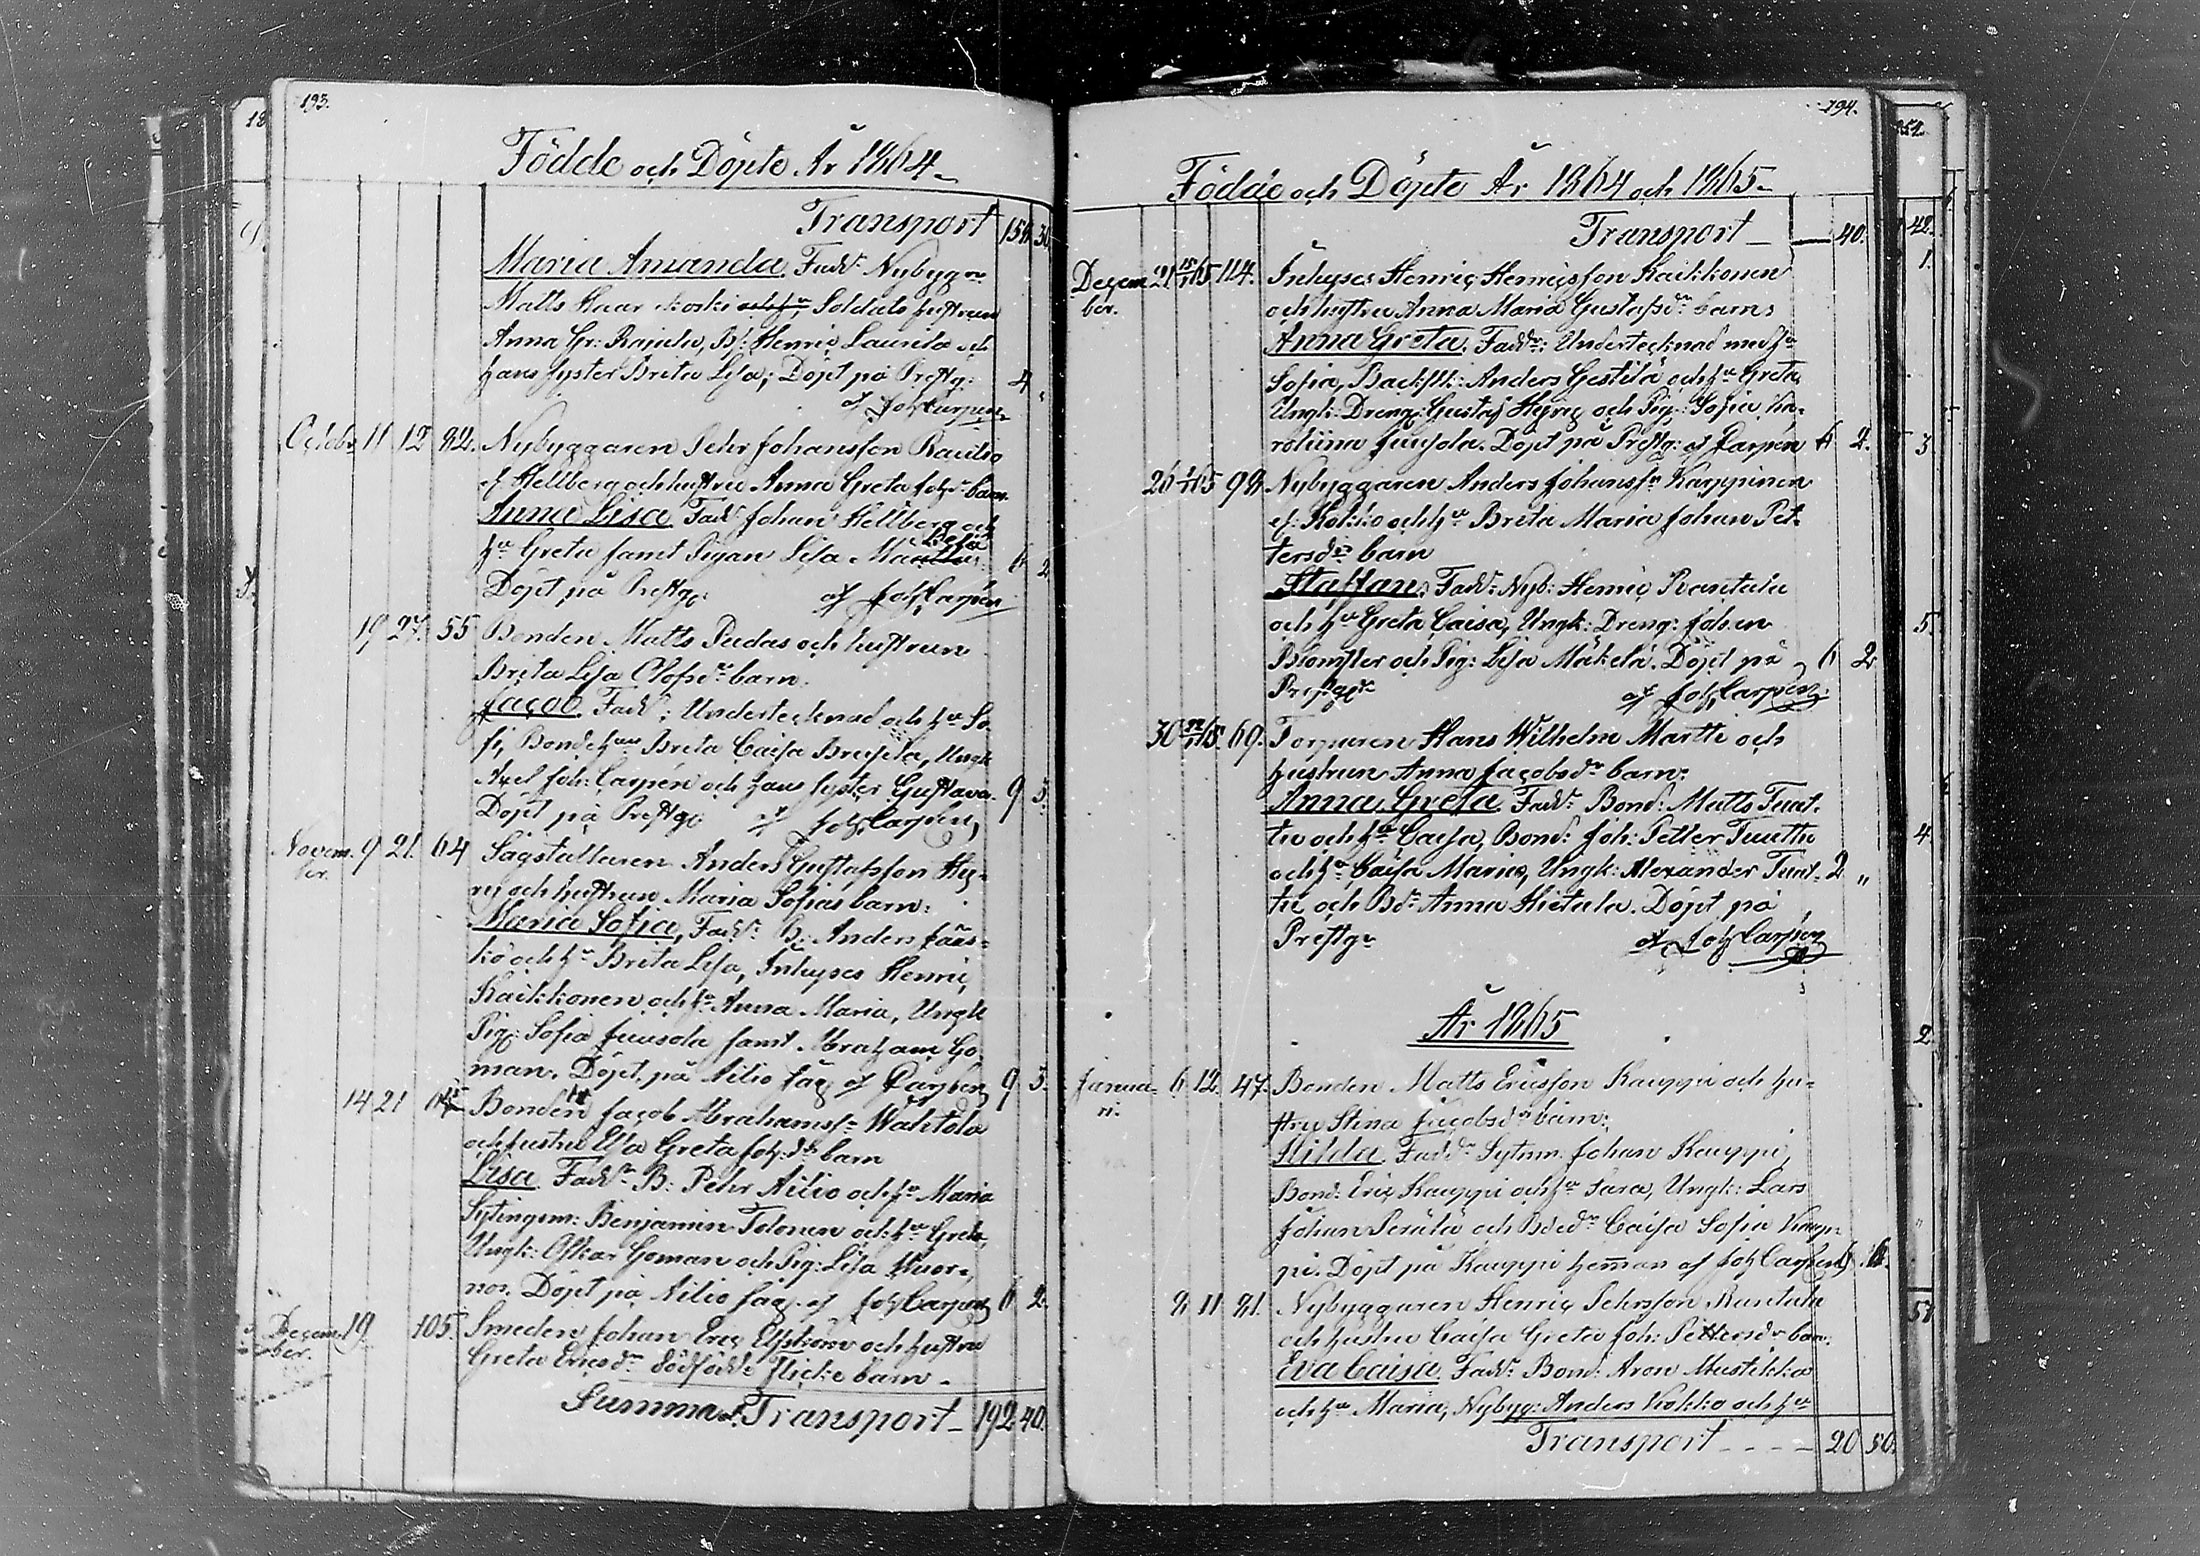 193.
Födde och Döpte År 1864
Transport 158 30
Maria Amanda, Fadd: Nybygg
Matts Haarakoski Soldats hustrun
Anna Gr: Rajala, B: Henric Laurila och
hans syster Brita Lisa; Döpt på Prestg: 4 "
af Joh Carpen
Octobr 11 12 82. Nybyggaren Pehr Johansson Rautio
ef. Hellberg och hustru Anna Greta Johsdr barn
Anna Lisa, Fadd: Johan Hellberg och
hu Greta samt Pigan Lisa 6 2
Döpt på Prestg: af Joh Carpen
19 27. 55 Bonden Matts Pudas och hustrun
Brita Lisa Olofsdr barn.
Jacob, Fadd: Undertecknad och hu So-
fi, Bondehun Brita Caisa, Ungk
Axel Joh: Carpén och hans syster Gustava. 9 3.
Döpt på Prestg: af Joh Carpen
Novem- 9 21. 64 Sagställaren Anders Gustafsson Hy-
ber. ry och hustrun Maria Sofias barn:
Maria Sofia, Fadd: B: Anders Jääs-
kö och hu Brita Lisa, Inhyses Henric
Kaikkonen och hu Anna Maria, Ungk
Pig: Sofia Juusola samt Abraham Go-
man. Döpt på Ailio såg af Carpen 9 3.
14 21 Bonden Jacob Abrahamss: Wähtola
och hustru Elsa Greta Joh:dr barn
Lisa Fadd: B: Pehr Ailio och hu Maria
Sytingsm: Benjamin Tolonen och hu Greta,
Ungk: Oskar Goman och Pig: Lisa
Döpt på Ailio såg. af Joh Carpen 6 2.
Decem- 19 105. Smeden Johan Eric Elfström och hustru
ber. Greta Ericsdr dödfödde flicke barn.
Summa Transport 192 40.
194.
Födde och Döpte År 1864 och 1865
Transport — 40.
Decem- 21 15/1 65 114. Inhyses Henric Henricsson Kaikkonen
ber. och hustru Anna Maria Gustafsdr barn:
Anna Greta, Fadd: Undertecknad med hu
Sofia, Backstk: Anders Gestilä och hu Greta
Ungk: Dreng: Gustaf Hyry och Pig: Sofia Ka-
rolina Juusola. Döpt på Prestg: af Carpén 6 2.
26 1/1 65 98. Nybyggaren Anders Johanss: Karppinen
ef. Kokko och hu Brita Maria Johan Pet-
tersdr barn
Staffan, Fadd: Nyb: Henric Rantala
och hu Greta Caisa, Ungk: Dreng: Johan
Blomster och Pig: Lisa Mäkelä. Döpt på 6 2
Prestg: af Joh Carpen
30 65. 69. Torparen Hans Wilhelm Martti och
hustrun Anna Jacobsdr barn:
Anna Greta, Fadd: Bond: Matts Tuut-
tu och hu Caisa, Bond: Joh: Petter Tuuttu
och hu Caisa Maria, Ungk: Alexander Tuut- 2 "
tu och Bdr Anna Hietala. Döpt på
Prestg: af Joh Carpén
År 1865
Janua- 6 12. 47. Bonden Matts Ericsson Kauppi och hu-
ri. stru Stina Jacobsdr barn:
Hilda Fadd: Sytnm. Johan Kauppi,
Bond: Eric Kauppi och hu Sara, Ungk: Lars
Johan Perätä och Bdedr Caisa Sofia Kaup-
pi. Döpt på Kauppi hemman af Joh Carpen
8 11 81. Nybyggaren Henric Pehrsson Rantala
och hustru Caisa Greta Joh: Pettersdr barn.
Eva Caisa, Fadd: Bond: Aron Mustikka
och hu Maria, Nybyg: Anders Kokko och hu
Transport - - - - 20 50.